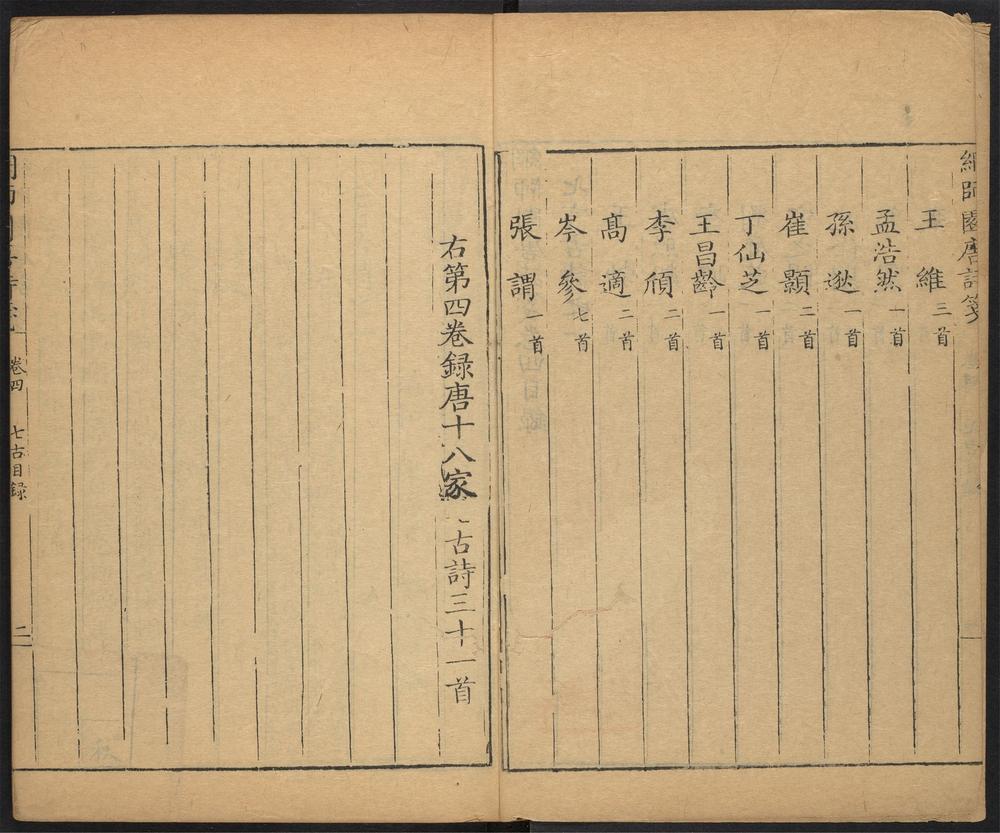 網師園唐詩箋
王維三首
孟浩然一首
孫逖一首
崔顥三首
丁仙芝一首
王昌齡一首
李頎二首
高適二首
岑參七首
張謂一首
右第四卷録唐十八家七古詩三十一首
卷四
七古目録
二